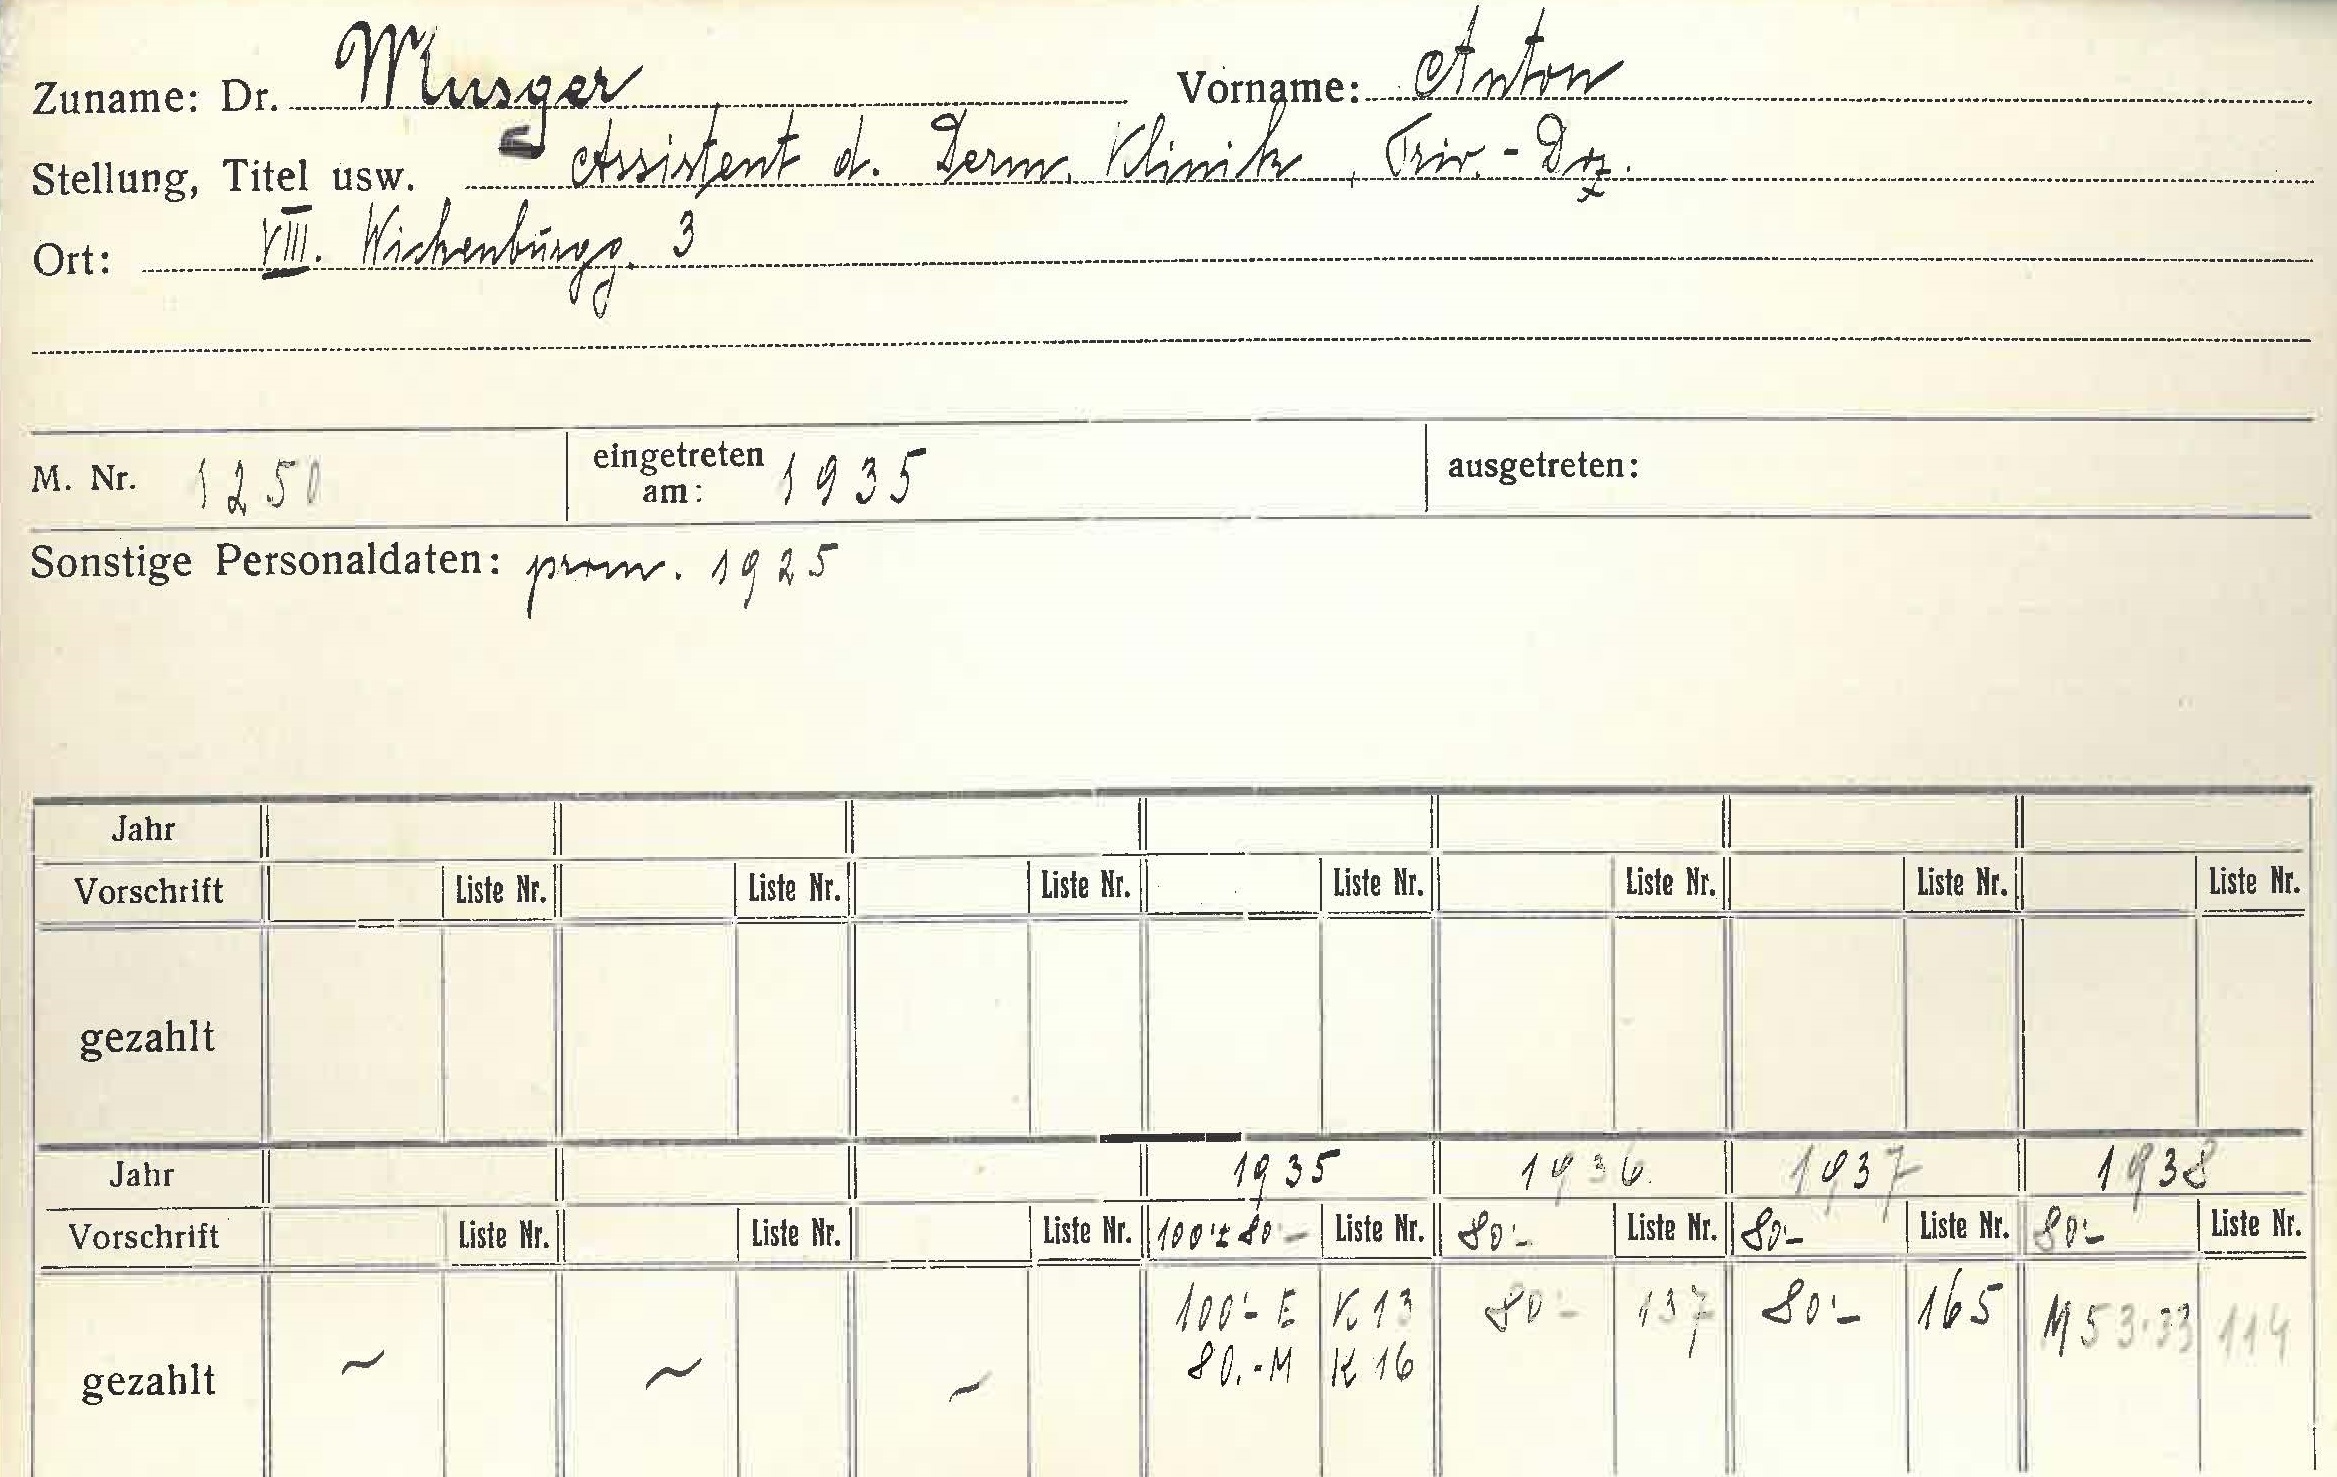 Zuname: Dr. Musger Vorname: Anton
Stellung, Titel usw. Assistent d. Derm. Klinik, Priv.-Doz.
Ort: VIII. Wickenburgg. 3
M. Nr. 1250 eingetreten am: 1935 ausgetreten:
Sonstige Personaldaten: prom. 1925
Jahr
Vorschrift Liste Nr. Liste Nr. Liste Nr. Liste Nr. Liste Nr. Liste Nr. Liste Nr.
gezahlt
Jahr 1935 1936 1937 1938
Vorschrift Liste Nr. Liste Nr. Liste Nr. 100'- 80'- Liste Nr. 80'- Liste Nr. 80'- Liste Nr. 80'- Liste Nr.
100'- E K 13 80'- 137 80'- 165 M 53·33 114
gezahlt ~ ~ ~ 80.- M K 16